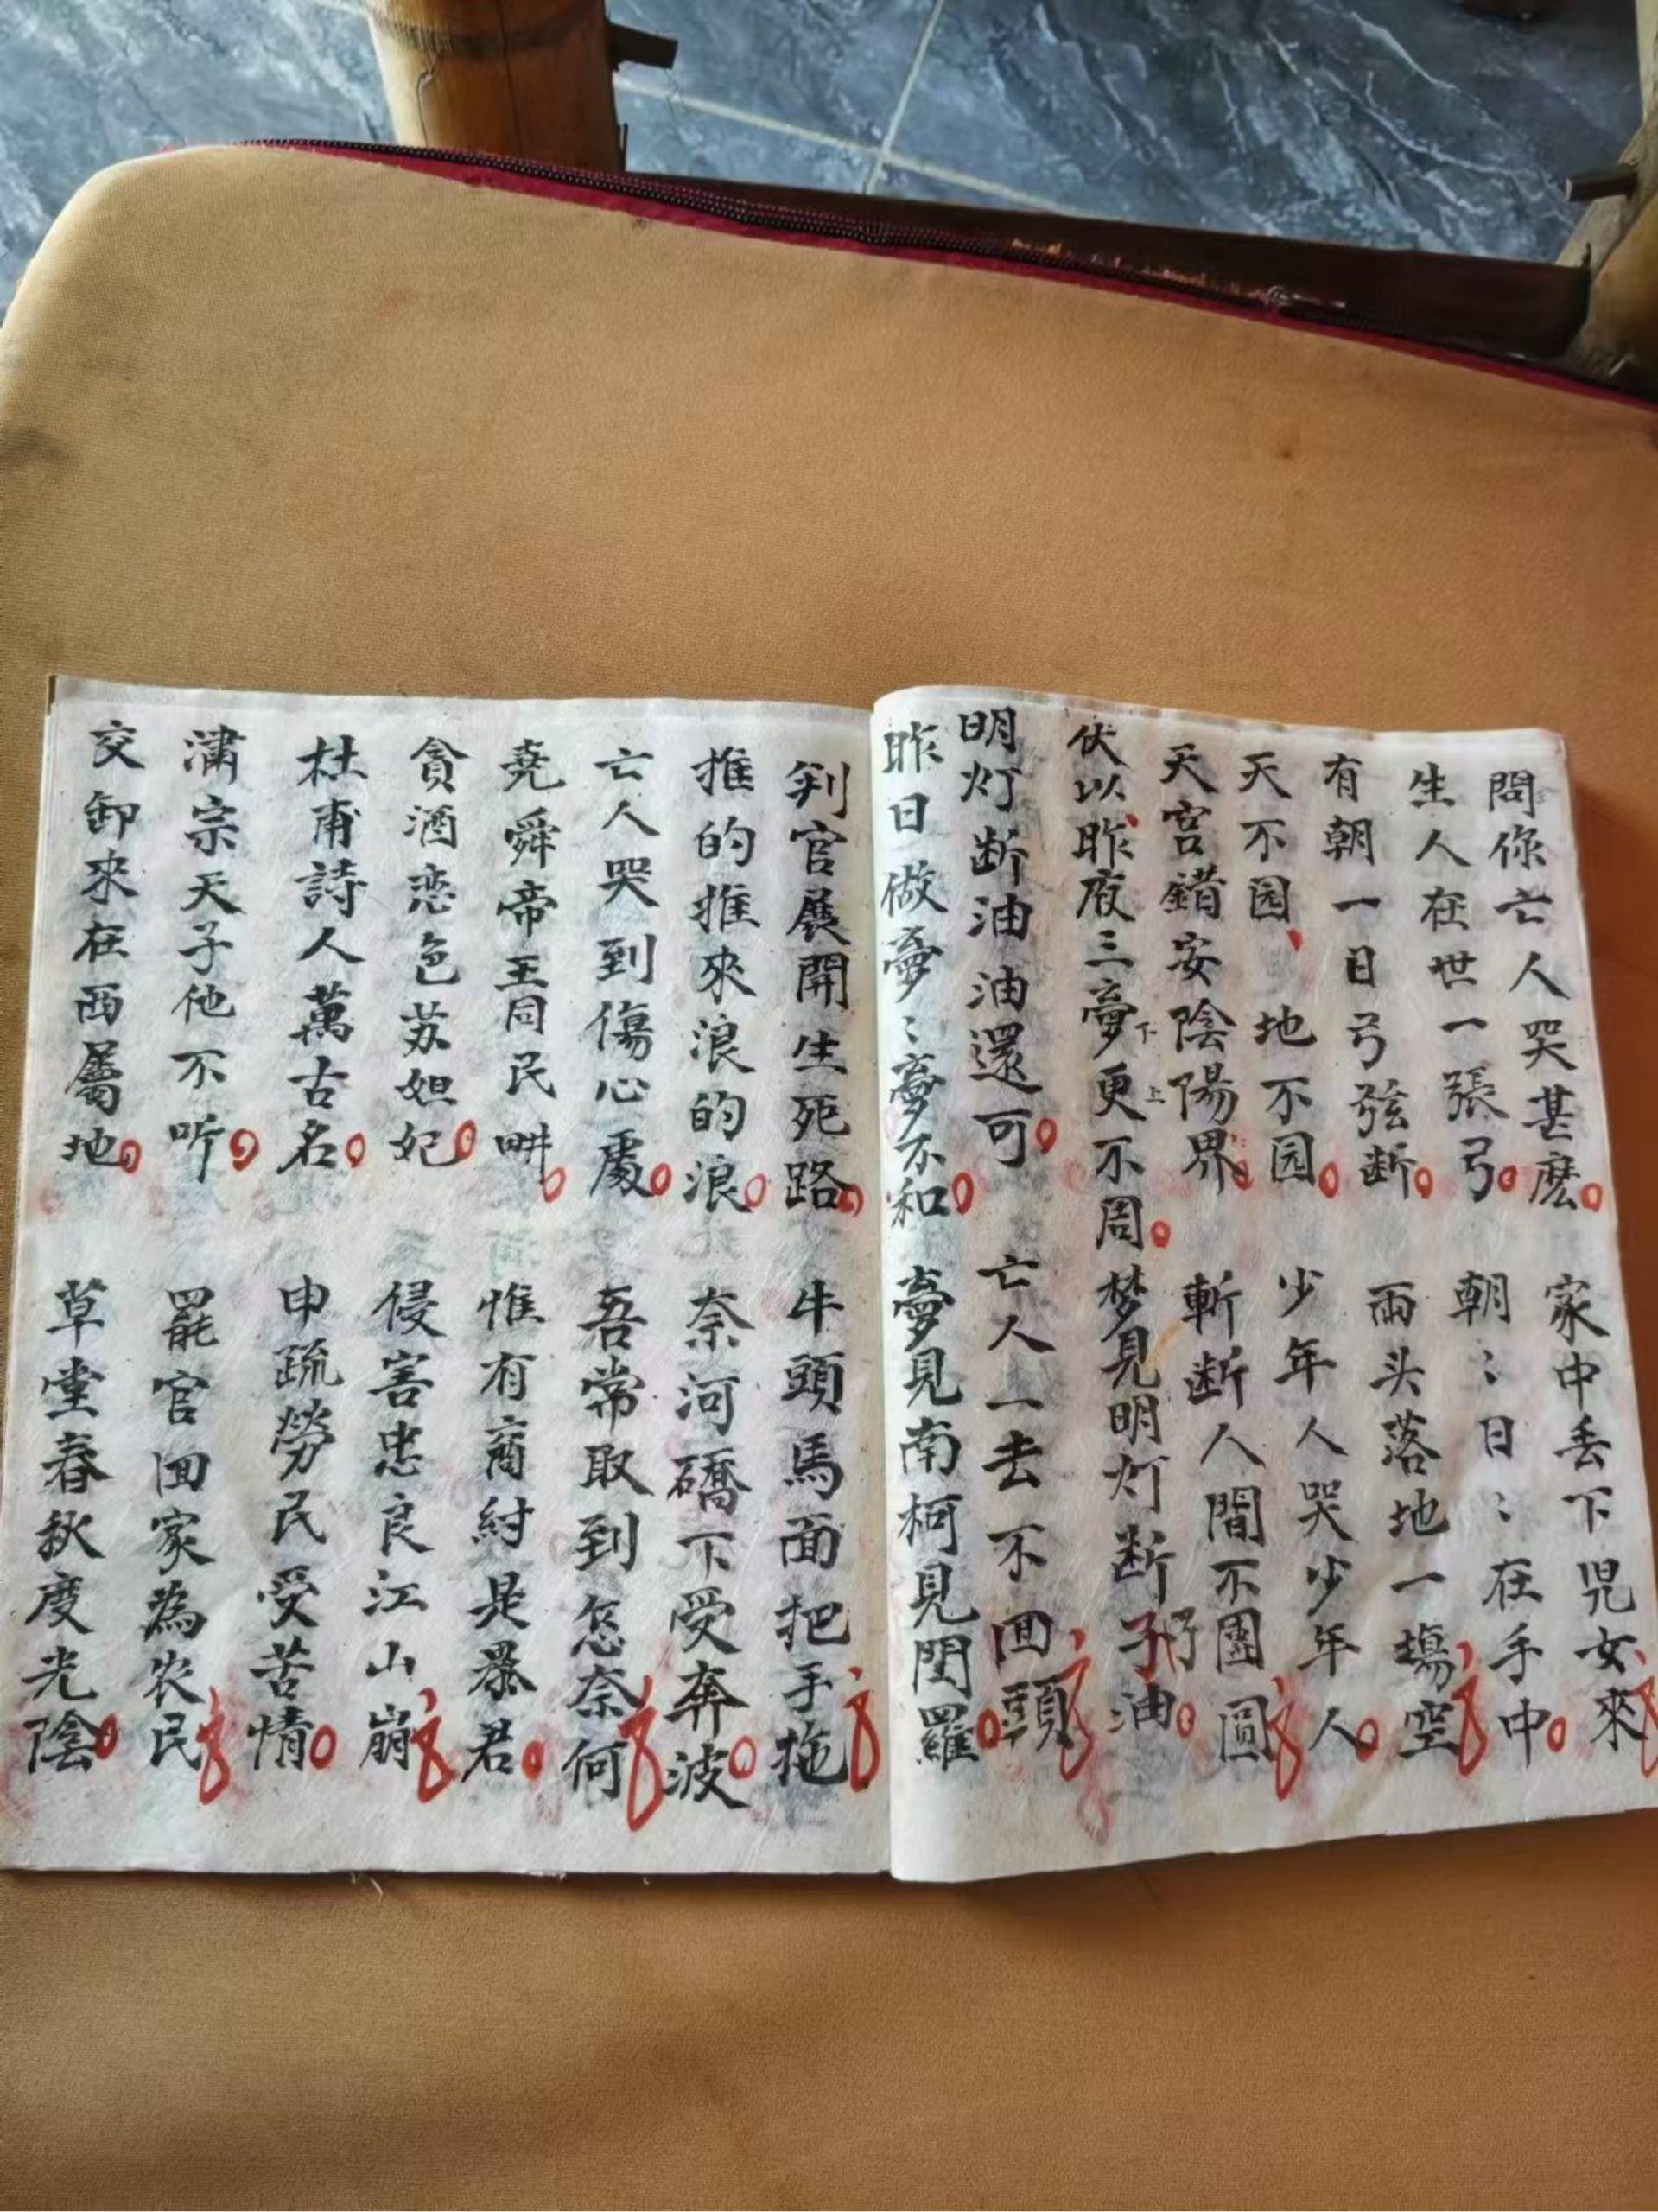 問你亡人哭甚麽 家中丢下児女來
生人在世一張弓 朝〻日〻在手中
有朝一日弓弦断 兩头落地一塲空
天不园 地不园 少年人哭少年人
天宫錯安陰陽界 斬断人間不團圓
伏以昨夜三夢下更上不周 梦見明灯断油
明灯断油油還可 亡人一去不囬頭
昨日做夢〻夢不和 夢見南柯見閻羅
判官展開生死路 牛頭馬面把手拖
推的推來浪的浪 奈河礄下受奔波
亡人哭到傷心處 吾常取到怎奈何
堯舜帝王同民畊 惟有商紂是暴君
貪酒恋色苏妲妃 侵害忠良江山崩
杜甫詩人萬古名 申疏勞民受苦情
潇宗天子他不听 罷官囬家為农民
交卸來在西屬地 草堂春秋度光陰